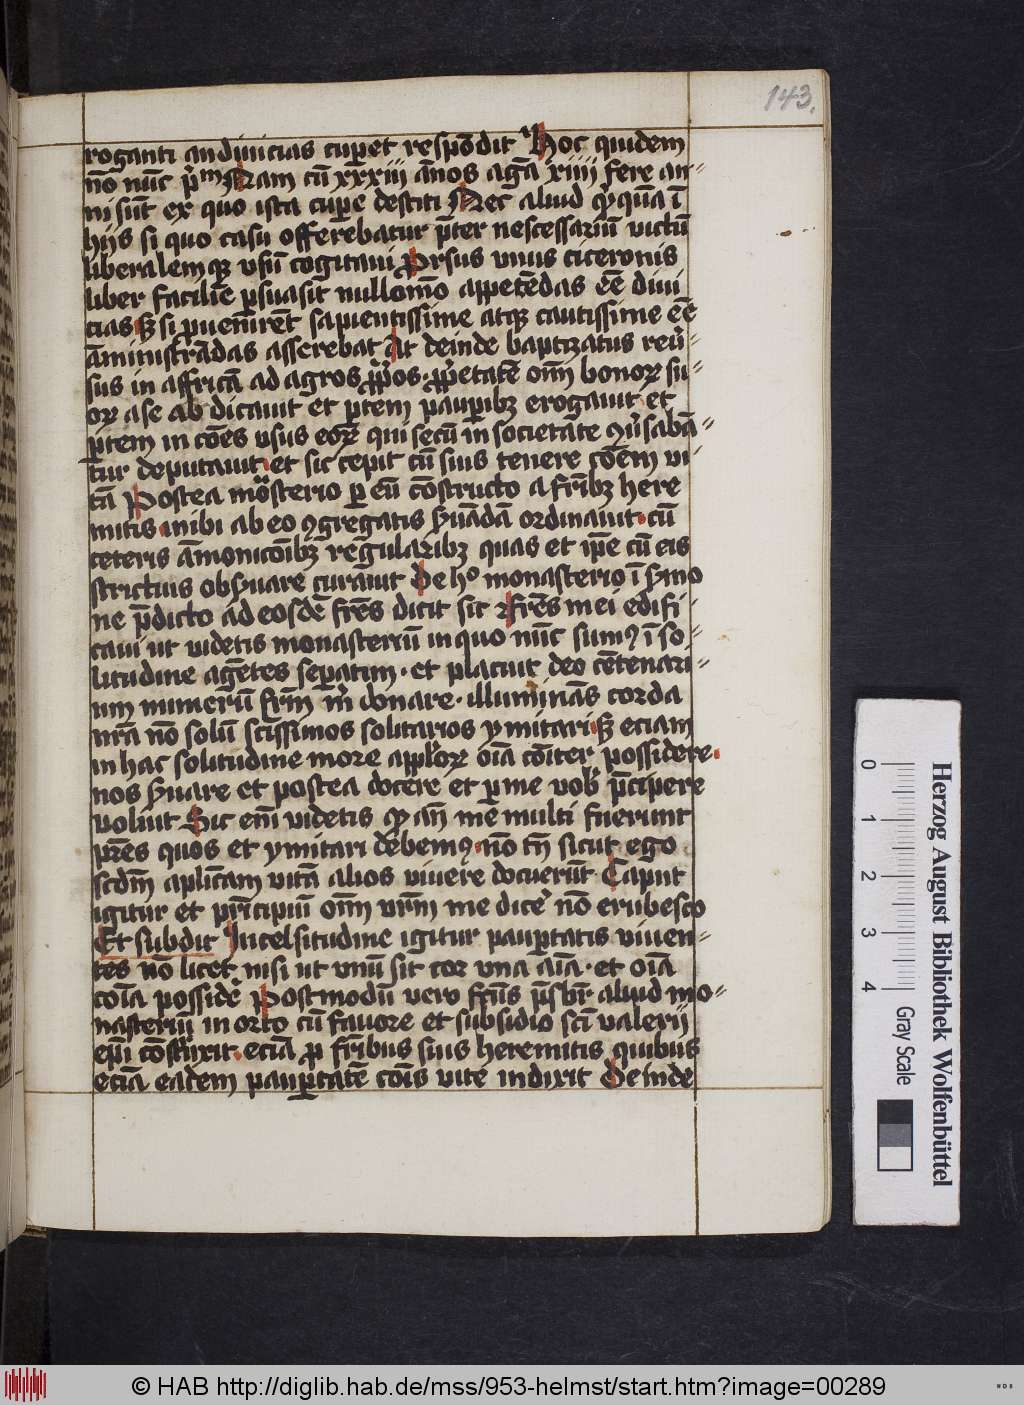 143.
roganti an diuicias cuperet respōdit Hoc quidem
nō nūc pͥmū Nam cū xxxiij ānos agā xiiij fere an⸗
ni sūt ex quo ista cupe destiti Nec aliud qͥquā ī
hijs si quo casu offerebatur p̄ter nescessariū victū
liberalemqꝫ vsū cogitaui Prorsus vnus ciceronis
liber facilīe ꝑsuasit nullomō appetēdas eē diui
cias sꝫ si ꝓuenīrēt sapientissime atqꝫ cautissime eē
āministrādas asserebat At deinde baptizatus reuͬ⸗
sus in affricā ad agros ꝓpͥos · ꝓpͥetatē om̄ bonoꝝ su⸗
oꝝ a se abdicauit et ꝑtem pauꝑibꝫ erogauit et
ꝑtem in cōes vsus eoꝝ qui secū in societate ꝯuͬsabā⸗
tur deputauit et sic cepit cū suis tenere cōem vi⸗
tā Postea mōsterio ꝑ eū cōstructo a fribꝫ here
mitis inibi ab eo ꝯgregatis ẜuādā ordinauit cū
ceteris āmonicōibꝫ regularibꝫ quas et ip̄e cū eis
strictius obẜuare curauit De hͦ monasterio ī ẜmo
ne p̄dicto ad eosdē frēs dicit sic Frēs mei edifi⸗
caui ut videtis monasteriū in quo nūc sumꝰ ī so⸗
litudine agētes seꝑatim · et placuit deo cētenari⸗
um numerū frm̄ mͥ donare · illuminās corda
nr̄a nō solū sctissimos solitarios ymitari sꝫ eciam
in hac solitudine more appl̄oꝝ oīa cōiter possidere
nos ẜuare et postea docere et ꝑ me vob̄ p̄cipere
voluit Sic enī videtis qͥ an̄ me multi fuerunt
pr̄es quos et ymitari debemꝰ nō tn̄ sicut ego
scdm̄ aplicam vitā alios viuere docuerūt Caput
igitur et prīcipiū om̄ vr̄m me dicͤe nō erubesco
Et subdit In celsitudine igitur pauꝑtatis viuen⸗
tes nō licet nisi ut vnū sit cor vna aīa · et oīa
coīa possidͤe Postmodū vero
aliud mo⸗
nasteriū in orto cū fauore et subsidio scī valerij
ep̄i cōstruxit eciā ꝓ fribus suis heremitis quibus
eciā eadem pauꝑtatē cōis vite indixit Deinde
Herzog August Bibliothek Wolfenbüttel
0 1 2 3 4
Gray Scale
© HAB http://diglib.hab.de/mss/953-helmst/start.htm?image=00289